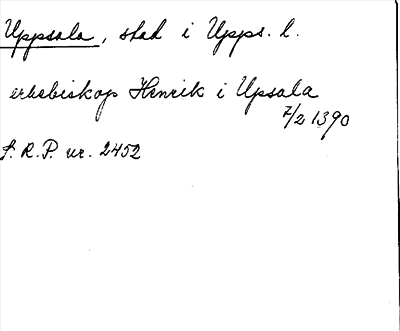 Uppsala, stad i Upps. l.
ärkebiskop Henrik i Upsala
7/2 1390
S. R. P. nr. 2452